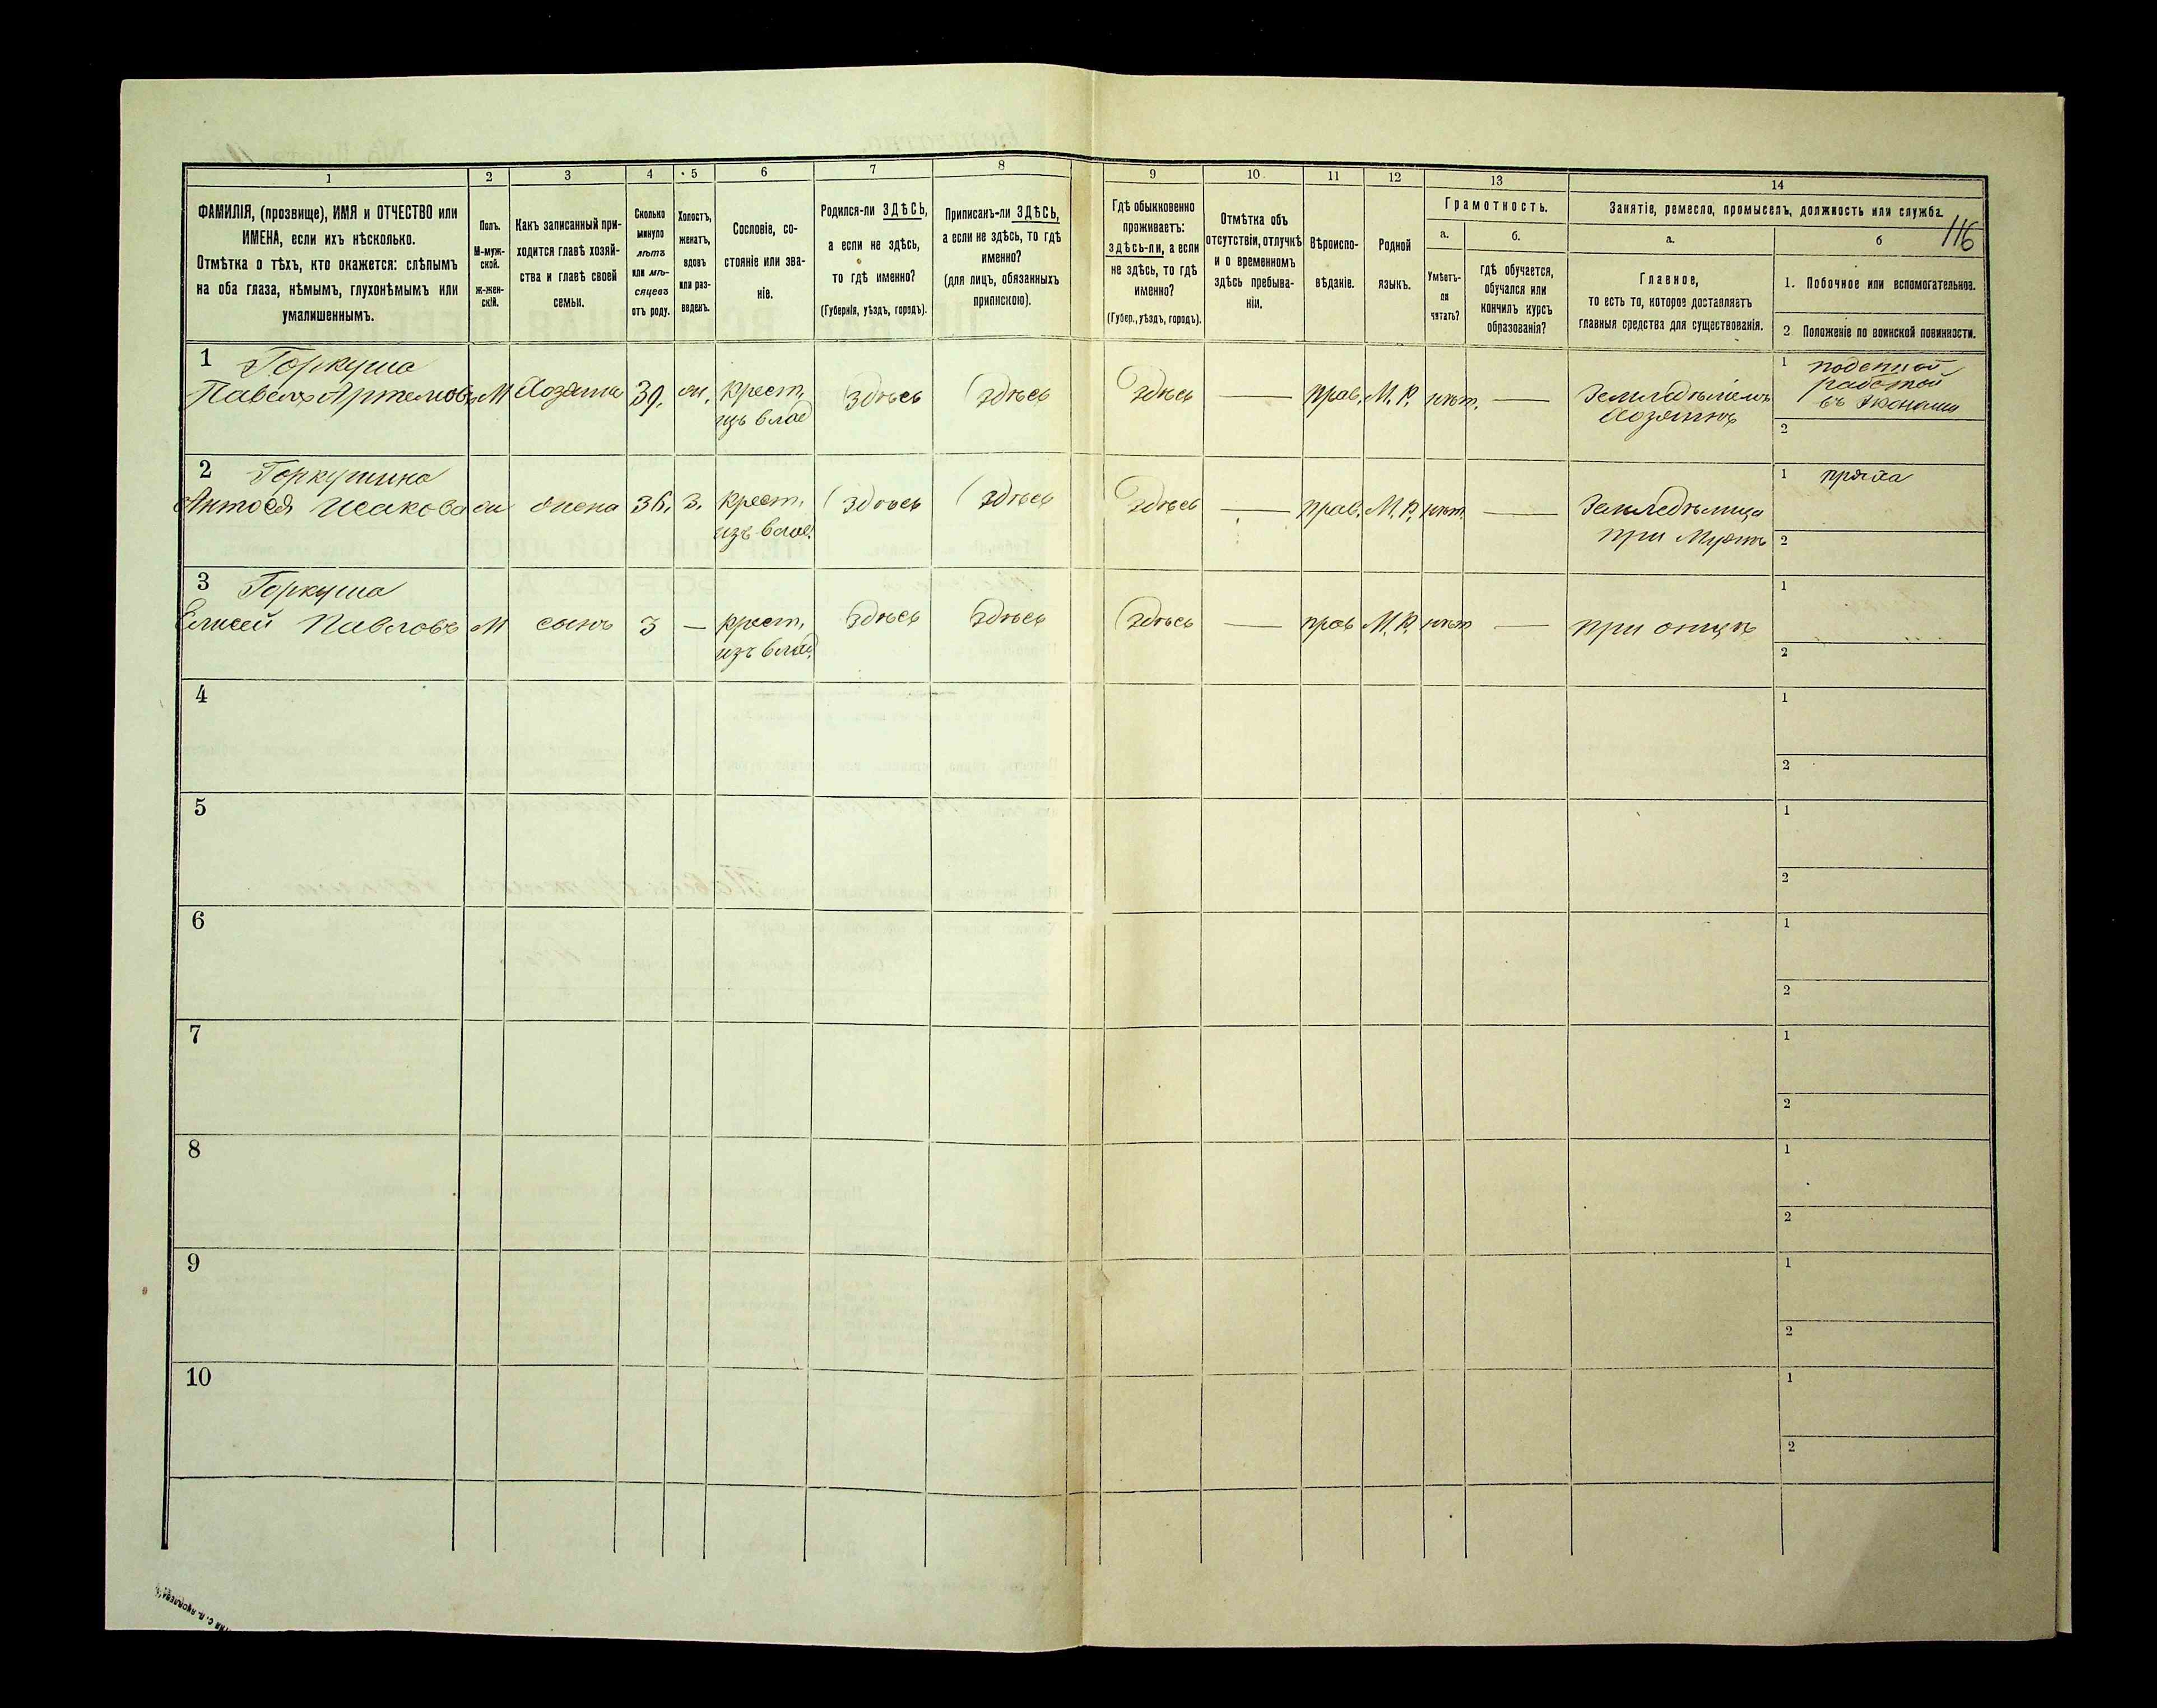 116
1 2 3 4 5 6 7 8 9 10 11 12 13 14
ФАМИЛІЯ, (прозвище), ИМЯ и ОТЧЕСТВО или
ИМЕНА, если ихъ нѣсколько.
Отмѣтка о тѣхъ, кто окажется: слѣпымъ
на оба глаза, нѣмымъ, глухонѣмымъ или
умалишеннымъ.
Полъ.
М-муж-
ской.
Ж-жен-
скій.
Какъ записанный при-
ходится главѣ хозяй-
ства и главѣ своей
семьи.
Сколько
минуло
лѣтъ
или мѣ-
сяцевъ
отъ роду.
Холостъ,
женатъ,
вдовъ
или раз-
веденъ.
Сословіе, со-
стояніе или зва-
ніе.
Родился-ли ЗДѢСЬ,
а если не здѣсь,
то гдѣ именно?
(Губернія, уѣздъ, городъ).
Приписанъ-ли ЗДѢСЬ,
а если не здѣсь, то гдѣ
именно?
(для лицъ, обязанныхъ
припискою).
Гдѣ обыкновенно
проживаетъ:
здѣсь-ли, а если
не здѣсь, то гдѣ
именно?
(Губер., уѣздъ, городъ).
Отмѣтка объ
отсутствіи, отлучкѣ
и о временномъ
здѣсь пребыва-
ніи.
Вѣроиспо-
вѣданіе.
Родной
языкъ.
Грамотность.
а.
Умѣетъ-
ли
читать?
б.
гдѣ обучается,
обучался или
кончилъ курсъ
образованія?
Занятіе, ремесло, промыселъ, должность или служба.
а.
Главное,
то есть то, которое доставляетъ
главныя средства для существованія.
б
1. Побочное или вспомогательное.
2 Положеніе по воинской повинности.
1 Горкуша
Павелъ Артемовъ М Хозяинъ 39. ж. крест. здѣсь здѣсь здѣсь — прав. М.Р. нѣтъ. — Земледѣлецъ 1 поденной
изъ влад хозяинъ работой
въ экономіи
2
2 Горкушина
Антося Исакова ж жена 36. з. крест. здѣсь здѣсь здѣсь — прав. М.Р. нѣтъ — Земледѣлица 1 пряха
изъ влад. при мужѣ 2
3 Горкуша
Елисей Павловъ М сынъ 3 — крест. здѣсь здѣсь здѣсь — прав М.Р. нѣтъ — при отцѣ 1
изъ влад. 2
4 1
2
5 1
2
6 1
2
7 1
2
8 1
2
9 1
2
10 1
2